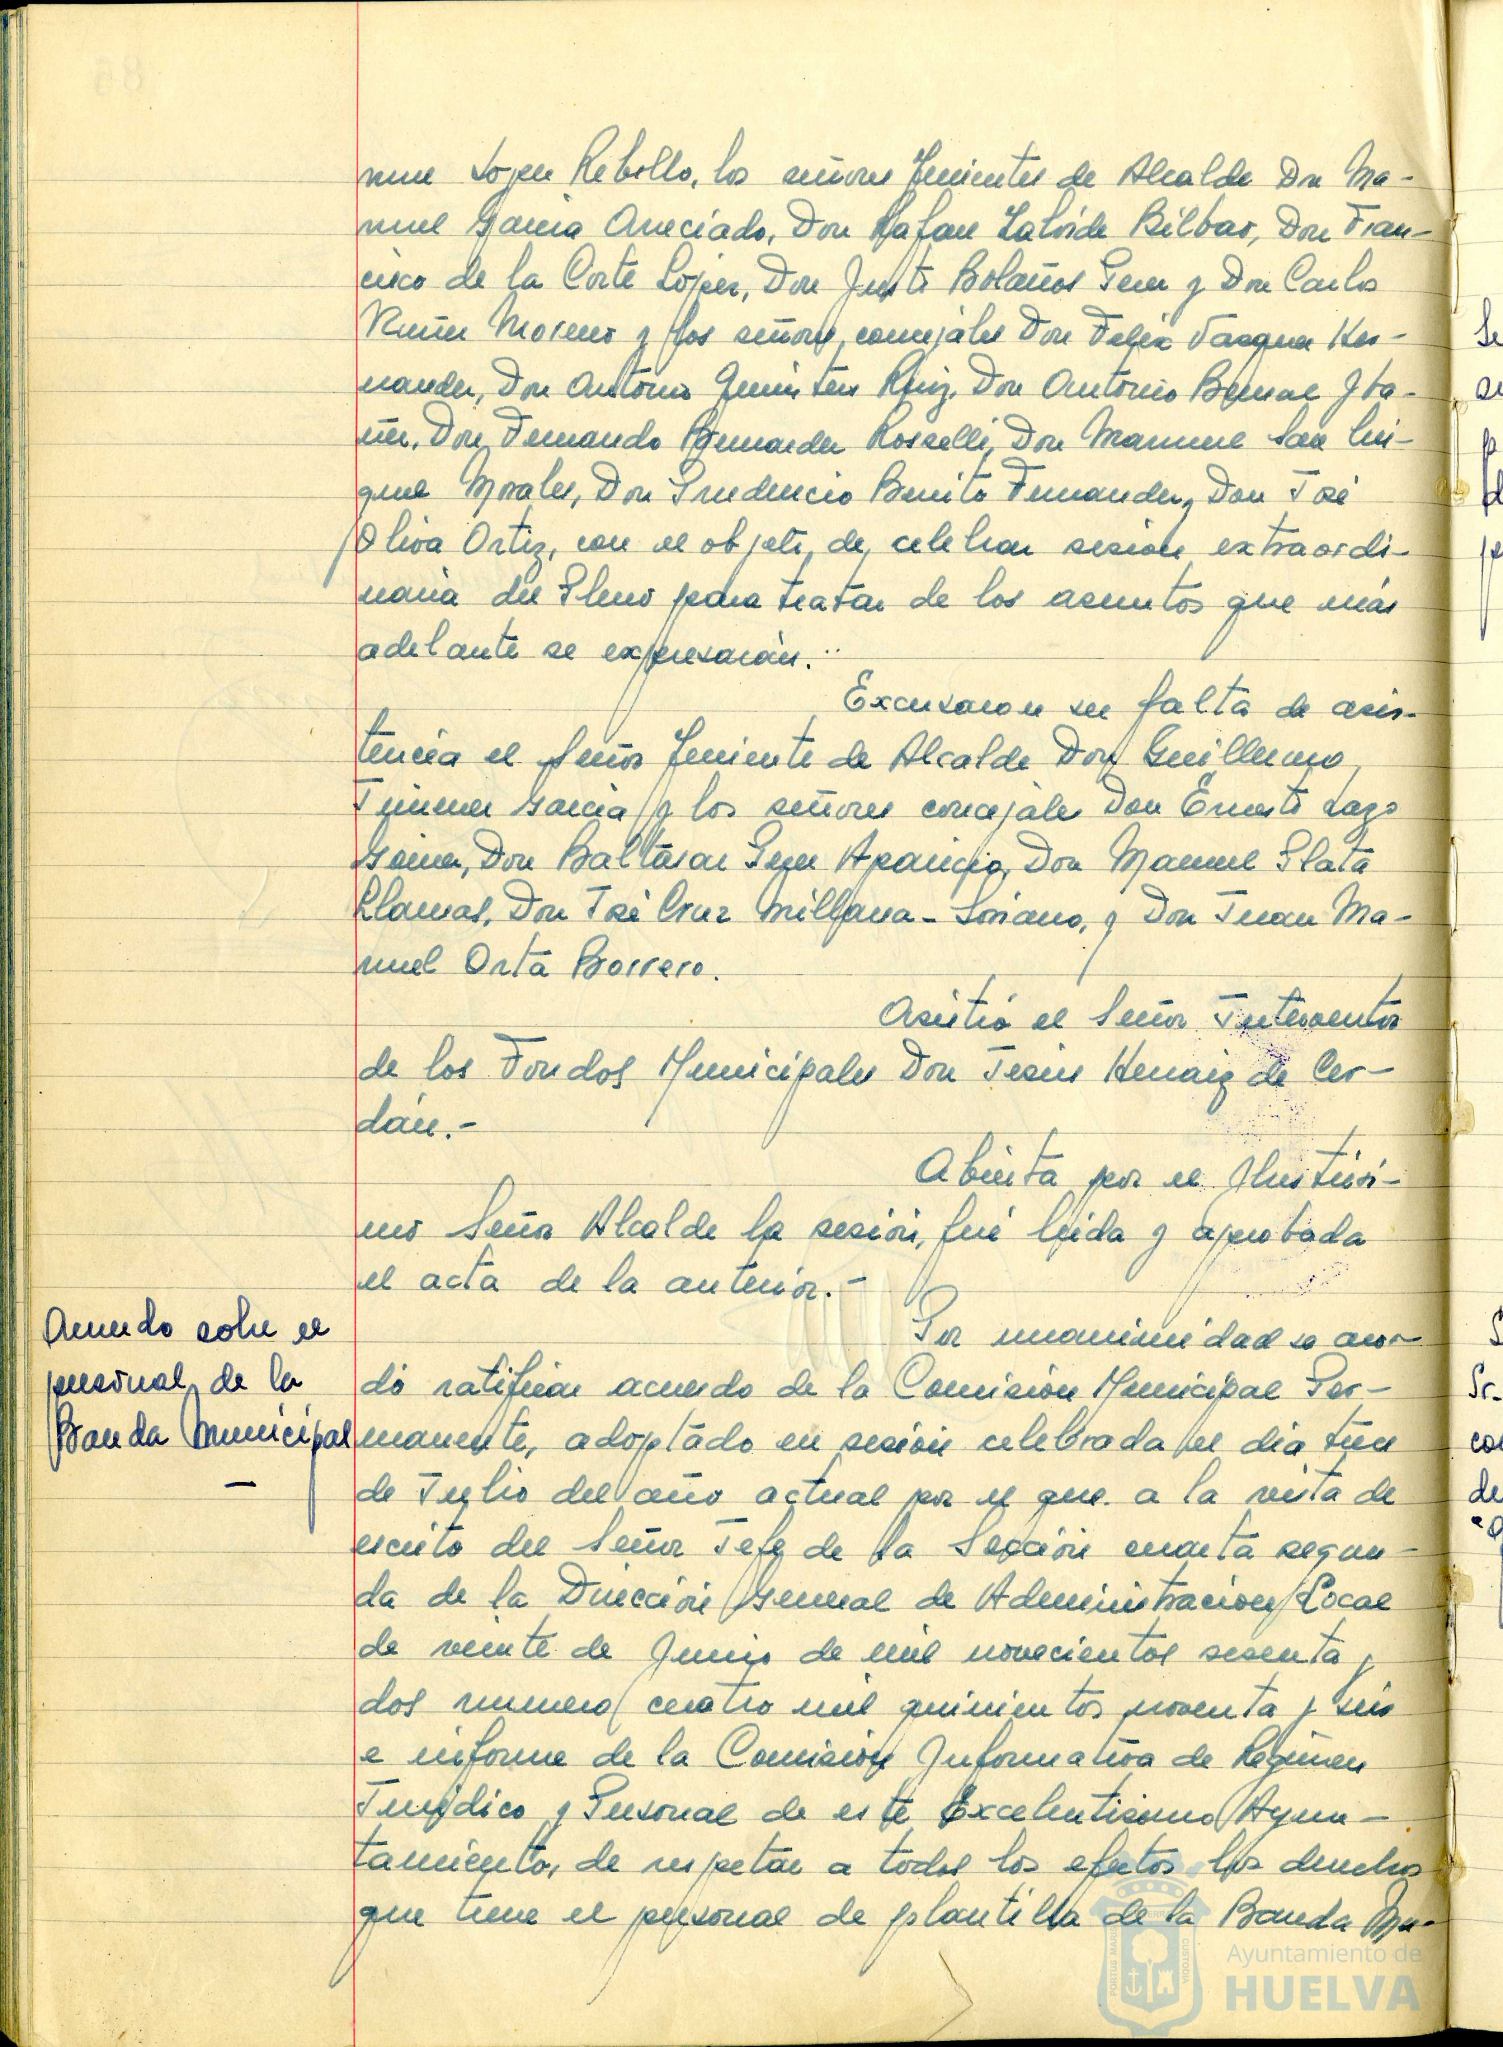 nuel López Rebollo, los señores Tenientes de Alcalde Don Ma-
nuel García Aneciado, Don Rafael Laborde Bilbao, Don Fran-
cisco de la Corte López, Don Justo Bolaños Pérez y Don Carlos
Núñez Moreno y los señores concejales Don Félix Vázquez Her-
nández, Don Antonio Quintero Ruiz, Don Antonio Bernal Iba-
ñez, Don Fernando Bermúdez Rosselli, Don Manuel San Mi-
guel Morales, Don Prudencio Benito Fernández, Don José
Oliva Ortiz, con el objeto de celebrar sesión extraordi-
naria del Pleno para tratar de los asuntos que más
adelante se expresarán.
Excusaron su falta de asis-
tencia el Señor Teniente de Alcalde Don Guillermo
Jiménez García y los señores concejales Don Ernesto Lazo
Gómez, Don Baltasar Pérez Aparicio, Don Manuel Plata
Llamas, Don José Cruz Millana-Soriano, y Don Juan Ma-
nuel Orta Borrero.
Asistió el Señor Interventor
de los Fondos Municipales Don Jesús Hernáiz de Cer-
dán.-
Abierta por el Ilustrísi-
mo Señor Alcalde la sesión, fué leida y aprobada
el acta de la anterior.-
Acuerdo sobre el
personal de la
Banda Municipal
-
Por unanimidad se acor-
dó ratificar acuerdo de la Comisión Municipal Per-
manente, adoptado en sesión celebrada el dia trece
de Julio del año actual por el que a la vista de
escrito del Señor Jefe de la Sección cuarta segun-
da de la Dirección General de Administración Local
de veinte de Junio de mil novecientos sesenta y
dos número cuatro mil quinientos noventa y seis
e informe de la Comisión Informativa de Régimen
Jurídico y Personal de este Excelentísimo Ayun-
tamiento, de respetar a todos los efectos los derechos
que tiene el personal de plantilla de la Banda Mu-
Ayuntamiento de
HUELVA